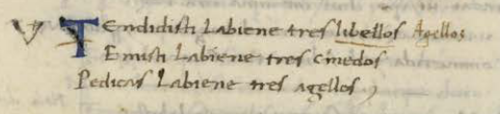 V TEndidisti Labiene tres libellos Agellos
Emisti Labiene tres cinedos
Pedicas Labiene tres agellos,